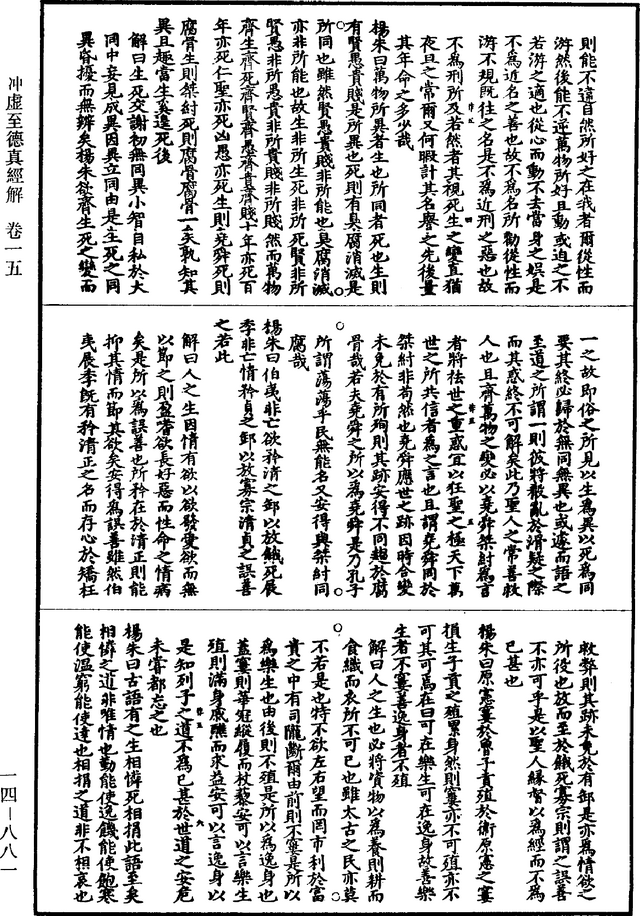 則能不違自然所好之在我者爾從性而
游然後能不逆萬物所好且動或迫之不
若游之適也從心而動不去當身之娛是
不為近名之善也故不為名所勸從性而
游不規既往之名是不為近刑之惡也故
不為刑所及若然者其視死生之變直猶
夜旦之常爾又何暇計其名譽之先後量
其年命之多少哉
楊朱曰萬物所異者生也所同者死也生則
有賢愚貴賤是所異也死則有臭腐消滅是
所同也雖然賢愚貴賤非所能也臭腐消滅
亦非所能也故生非所生死非所死賢非所
賢愚非所愚貴非所貴賤非所賤然而萬物
齊生齊死齊賢齊愚齊貴齊賤十年亦死百
年亦死仁聖亦死凶愚亦死生則堯舜死則
腐骨生則桀紂死則腐骨腐骨一矣孰知其
異且趣當生奚遑死後
解曰生死交謝初無同異小智自私於大
同中妄見成異因異立同由是生死之同
異紛擾而無辨矣楊朱欲齊生死之變而
一之故即俗之所見以生為異以死為同
要其終必歸於無同無異也或遽而語之
至道之所謂一則彼將散亂於滑疑之際
而其惑終不可解矣此乃聖人之常善救
人也且齊萬物之變必以堯舜桀紂為言
者將祛世之重惑宜以狂聖之極天下萬
世之所共信者為之言也且謂堯舜同於
桀紂非苟然也堯舜應世之跡因時合變
未免於有所殉則其跡安得不同趨於腐
骨哉若夫堯舜之所以為堯舜是乃孔子
所謂蕩蕩乎民無能名又安得與桀紂同
腐哉
楊朱曰伯夷非亡欲矜清之卸以放餓死展
季非亡情矜貞之卸以放寡宗清貞之誤善
之若此
解曰人之生因情有欲以欲發愛欲而無
以節之則盈嗜欲長好惡而性命之情病
矣是所以為誤善也所矜在於清正則能
抑其情而節其欲矣安得為誤善雖然伯
夷展季既有矜清正之名而存心於矯枉
救弊則其跡未免於有卸是亦為情欲之
所役也放而至於餓死寡宗則謂之誤善
不亦可乎是以聖人緣督以為經而不為
已甚也
楊朱曰原憲窶於魯子貢殖於衛原憲之窶
損生子貢之殖累身然則窶亦不可殖亦不
可其可焉在曰可在樂生可在逸身故善樂
生者不窶善逸身者不殖
解曰人之生也必將資物以為養則耕而
食織而衣所不可已也雖太古之民亦莫
不若是也特不欲左右望而罔市利於富
貴之中有司隴斷爾由前則不窶是所以
為樂生也由後則不殖是所以為逸身也
蓋窶則華冠縰履而杖藜安可以言樂生
殖則滿身戚醮而求益安可以言逸身以
是知列子之道不為已甚於世道之安危
未嘗都忘之也
楊朱曰古語有之生相憐死相捐此語至矣
相憐之道非唯情也勤能使逸饑能使飽寒
能使溫窮能使達也相捐之道非不相哀也
冲虛至德真經解 卷一五
一四－八八一